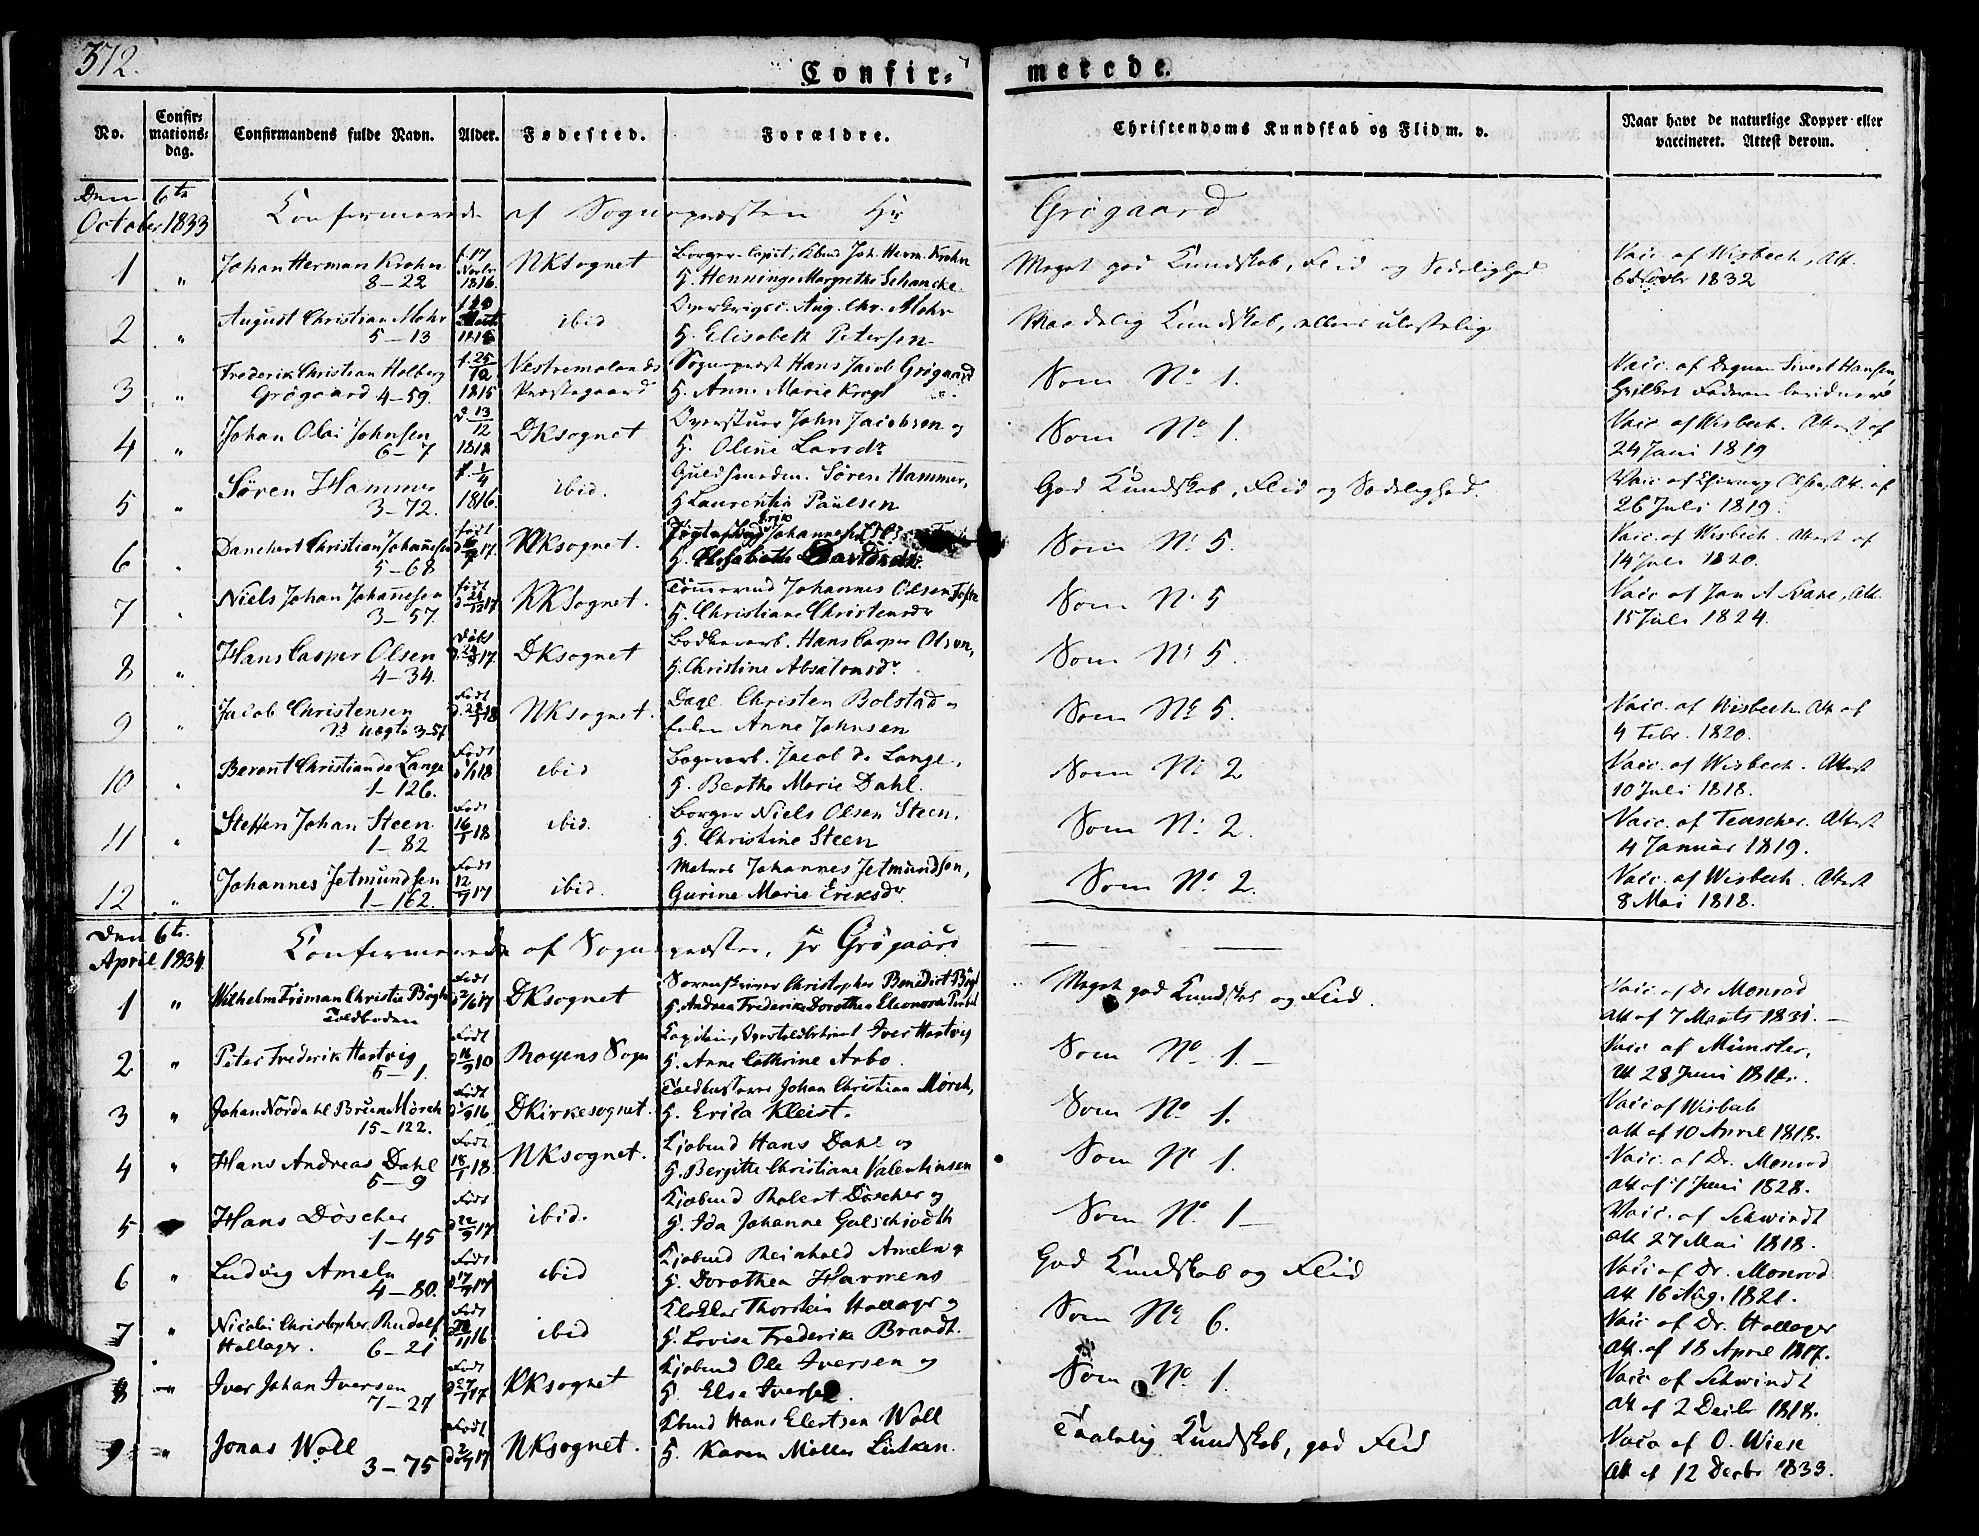 372.
Confir-
merede.
No.
Confir-
mations-
dag.
Confirmandens fulde Navn.
Alder.
Fødested.
Forældre.
Christendoms Kundskab og Flid m. v.
Naar havt de naturlige Kopper eller
vaccineret. Attest derom.
Den 6te
October 1833
Confirmerede af Sognepræsten Hr Grøgaard
1 " Johan Herman Krohn
8-22
f. 17
1816.
NKsognet
Joh. Herm. Krohn
H. Henninge Margrethe Schancke
Meget god Kundskab, Flid og Sædelighed
Vacc. af Wisbech, Att.
6 Novbr 1832
2 " August Christian Mohr
5-13
ibid
Aug. Chr. Mohr
H. Elisabeth Petersen
Maadelig Kundskab, ellers ulastelig
3 " Frederik Christian Holberg
Grøgaard 4-59.
f. 25/12
1815
Vestremolands
Præstegaard
Sognepræst Hans Jacob Grøgaard
H. Anne Marie Krogh
Som No 1.
Vacc. af Degnen Sivert Hansen
4 " Johan Olai Johnsen
6-7
d. 13/12
DKsognet
John Jacobsen og
H. Oline Larsdr
Som No 1.
Vacc. af Wisbech. Attest af
24 Juni 1819
5 " Søren Hammer
3-72.
f. 1/4
1816.
ibid.
Guldsmeden Søren Hammer,
H. Laurentia Paulsen
God Kundskab, Flid og Sædelighed.
26 Juli 1819.
6 " Danchert Christian Johannesen
5-68
født
17.
NKsognet.
Johannesen
H. Elisabeth Davidsdr.
Som No 5.
Vacc. af Wisbech. Attest af
14 Juli 1820.
7 " Niels Johan Johannesen
3-57.
født
17
NKsognet.
Tømmermd Johannes Olsen
H. Christiane Christensdr
Som No 5
15 Juli 1824.
8 " Hans Casper Olsen
4-34.
17.
DKsognet
Hans Casper Olsen,
H. Christine Absalonsdr.
Som No 5.
9 " Jacob Christensen
3-57
Født
18
NKsognet.
Dagl. Christen Bolstad
Anne Johnsen
Som No 5.
Vacc. af Wisbech. Att. af
4 Febr. 1820.
10 " Berent Christian de Lange
1-126.
Født
18
ibid
Jacob de Lange,
H. Berthe Marie Dahl.
Som No 2
Vacc. af Wisbech. Attest
10 Juli 1818.
11 " Steffen Johan Steen
1-82
Født
18
ibid.
Borger Niels Olsen Steen,
H. Christine Steen
Som No 2.
Vacc. af Teuscher. Attest
4 Januar 1819.
12 " Johannes Jetmundsen
1-162.
Født
12/9 17
ibid.
Matros Johannes Jetmundsen,
Gurine Marie Eriksdr
Som No 2.
Vacc. af Wisbech. Attest
8 Mai 1818.
Den 6te
April 1834
Confirmerede af Sognepræsten, Hr Grøgaard
1 " Wilhelm Friman Christie Bøgh
Toldboden
Født
17
DKsognet
Sorenskriver Christopher Benedict Bøgh
H. Andrea Frederike Dorothea Eleonora
Meget god Kundskab og Flid.
Vacc. af Dr Monrad
Att. af 7 Marts 1831.
2 " Peter Frederik Hartvig
5-1.
Født
Iver Hartvig
H. Anne Cathrine Arbo.
Som No 1.
Vacc. af Münster,
Att 28 Juni
3 " Johan Nordahl Brun Mørch
15-122.
Født
16
DKirkesognet.
Johan Christian Mørch,
H. Erica Kleist.
Som No 1.
Vacc af Wisbech
Att af 10 April 1818.
4 " Hans Andreas Dahl
5-9
Født
18.
NKsognet.
Kjøbmd Hans Dahl og
H. Bergitte Christiane Valentinsen
Som No 1.
Vacc. af Dr. Monrad
Att. af 7 Juni 1828.
5 Hans Döscher
1-45
Født
17
ibid.
Kjøbmd Döscher og
H. Ida Johanne Galschiødth
Som No 1
Vacc. af Schwindt
Att 27 Mai 1818.
6 " Ludvig Ameln
4-80.
Født
17
ibid
Kjøbmd Reinhold Ameln og
H. Dorothea Harmens
God Kundskab og Flid
Vacc af Dr. Monrad
Att 16 Aug. 1821.
7 " Nicolai Christopher Rudolf
Hallager. 6-21
Født
16
ibid
Klokker Thorstein Hallager og
H. Lovise Frederike Brandt.
Som No 6.
Vacc af Dr. Hallager
Att. af 18 April 1817.
8 " Iver Johan Iversen
7-27
Født
17
NKsognet
Kjøbmd Ole Iversen og
H. Else Iversen.
Som No 1.
Vacc af Schwindt
Att af 2 Decbr 1818.
9 " Jonas Woll
3-75
Født
17
NKsognet.
Kbmd Hans Elertsen Woll
H. Karen Møller Lütken.
Taalelig Kundskab, god Flid
Vacc af O. Wiese
Att af 12 Decbr 1833.